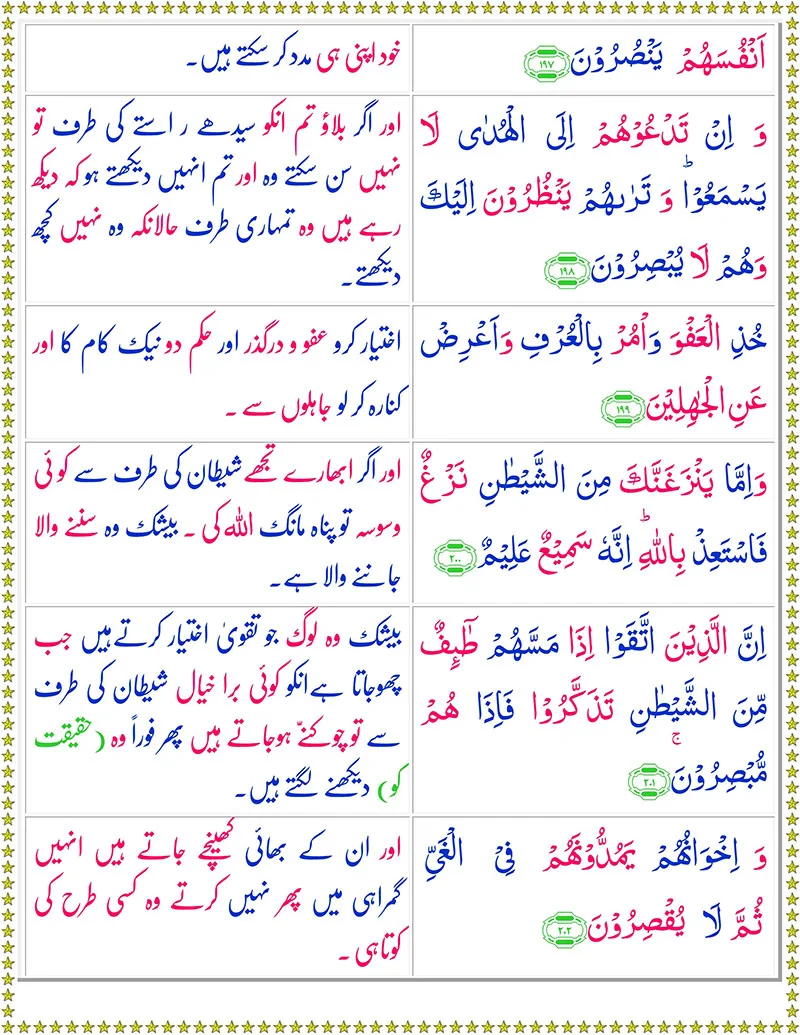 اَنْفُسَهُمْ يَنْصُرُوْنَ ۱۹۷
خود اپنی ہی مدد کر سکتے ہیں۔
وَ اِنْ تَدْعُوْهُمْ اِلَى الْهُدٰى لَا
يَسْمَعُوْا ؕ وَ تَرٰىهُمْ يَنْظُرُوْنَ اِلَيْكَ
وَهُمْ لَا يُبْصِرُوْنَ ۱۹۸
اور اگر بلاؤ تم انکو سیدھے راستے کی طرف تو
نہیں سن سکتے وہ اور تم انہیں دیکھتے ہو کہ دیکھ
رہے ہیں وہ تمہاری طرف حالانکہ وہ نہیں کچھ
دیکھتے۔
خُذِ الْعَفْوَ وَاْمُرْ بِالْعُرْفِ وَاَعْرِضْ
عَنِ الْجٰهِلِيْنَ ۱۹۹
اختیار کرو عفو و درگذر اور حکم دو نیک کام کا اور
کنارہ کر لو جاہلوں سے ۔
وَاِمَّا يَنْزَغَنَّكَ مِنَ الشَّيْطٰنِ نَزْغٌ
فَاسْتَعِذْ بِاللّٰهِ ؕ اِنَّهٗ سَمِيْعٌ عَلِيْمٌ ۲۰۰
اور اگر ابھارے تجھے شیطان کی طرف سے کوئی
وسوسہ تو پناہ مانگ اللہ کی ۔ بیشک وہ سننے والا
جاننے والا ہے۔
اِنَّ الَّذِيْنَ اتَّقَوْا اِذَا مَسَّهُمْ طٰٓئِفٌ
مِّنَ الشَّيْطٰنِ تَذَكَّرُوْا فَاِذَا هُمْ
مُّبْصِرُوْنَ ۚ ۲۰۱
بیشک وہ لوگ جو تقویٰ اختیار کرتے ہیں جب
چھو جاتا ہے انکو کوئی برا خیال شیطان کی طرف
سے تو چوکنّے ہوجاتے ہیں پھر فوراً وہ (حقیقت
کو) دیکھنے لگتے ہیں۔
وَ اِخْوَانُهُمْ يَمُدُّوْنَهُمْ فِى الْغَىِّ
ثُمَّ لَا يُقْصِرُوْنَ ۲۰۲
اور ان کے بھائی کھینچے جاتے ہیں انہیں
گمراہی میں پھر نہیں کرتے وہ کسی طرح کی
کوتاہی ۔